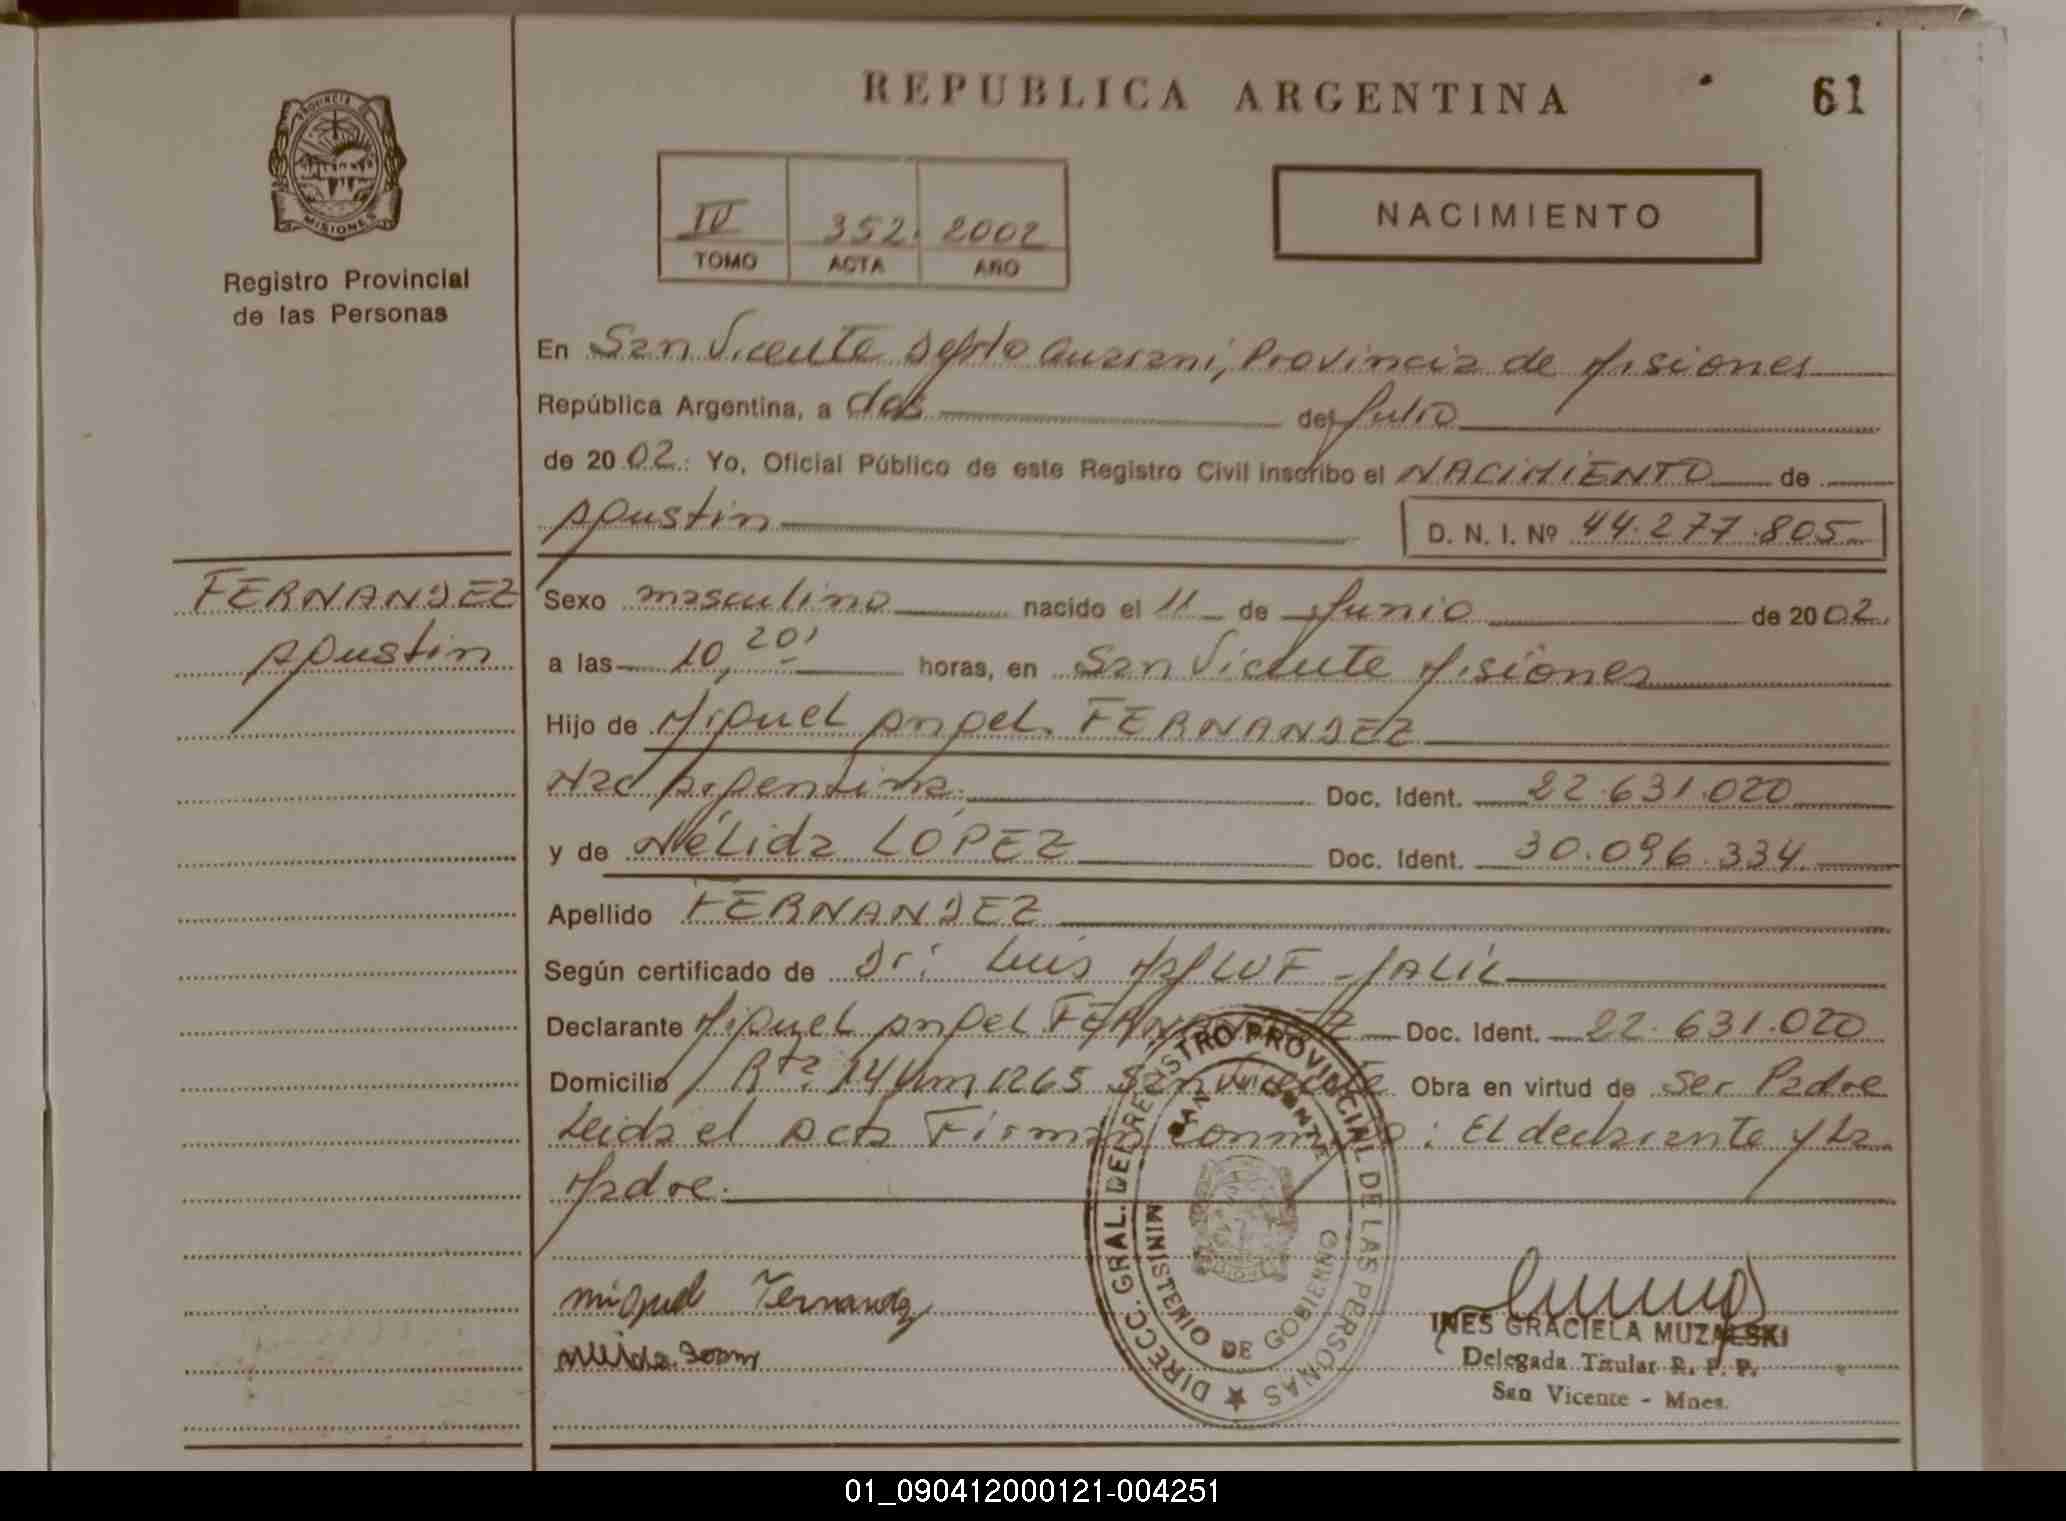 REPUBLICA ARGENTINA
61
PROVINCIA DE
MISIONES
Registro Provincial
de las Personas
IV 352 2002
TOMO ACTA AÑO
NACIMIENTO
En San Vicente Depto Guarani, Provincia de Misiones
República Argentina, a dos de Julio
de 2002: Yo, Oficial Público de este Registro Civil inscribo el NACIMIENTO de
Agustin
D. N. I. Nº 44.277.805
FERNANDEZ
Agustin
Sexo masculino nacido el 11 de Junio de 2002.
a las 10,20' horas, en San Vicente Misiones
Hijo de Miguel Angel FERNANDEZ
Nac Argentina Doc. Ident. 22.631.020
y de Nélida LÓPEZ Doc. Ident. 30.096.334
Apellido FERNANDEZ
Según certificado de Dr: Luis JALIL
Declarante Miguel Angel FERNANDEZ Doc. Ident. 22.631.020
Domicilio Rta 14 Km 1265 San Vicente Obra en virtud de Ser Padre
Leida el Acta Firman conmigo: El declarante y La
Madre.
DIRECC. GRAL. DEL REGISTRO PROVINCIAL DE LAS PERSONAS
SAN VICENTE
MINISTERIO DE GOBIERNO
Miguel Fernandez
INES GRACIELA MUZALSKI
Delegada Titular R. P. P.
San Vicente - Mnes.
01_090412000121-004251